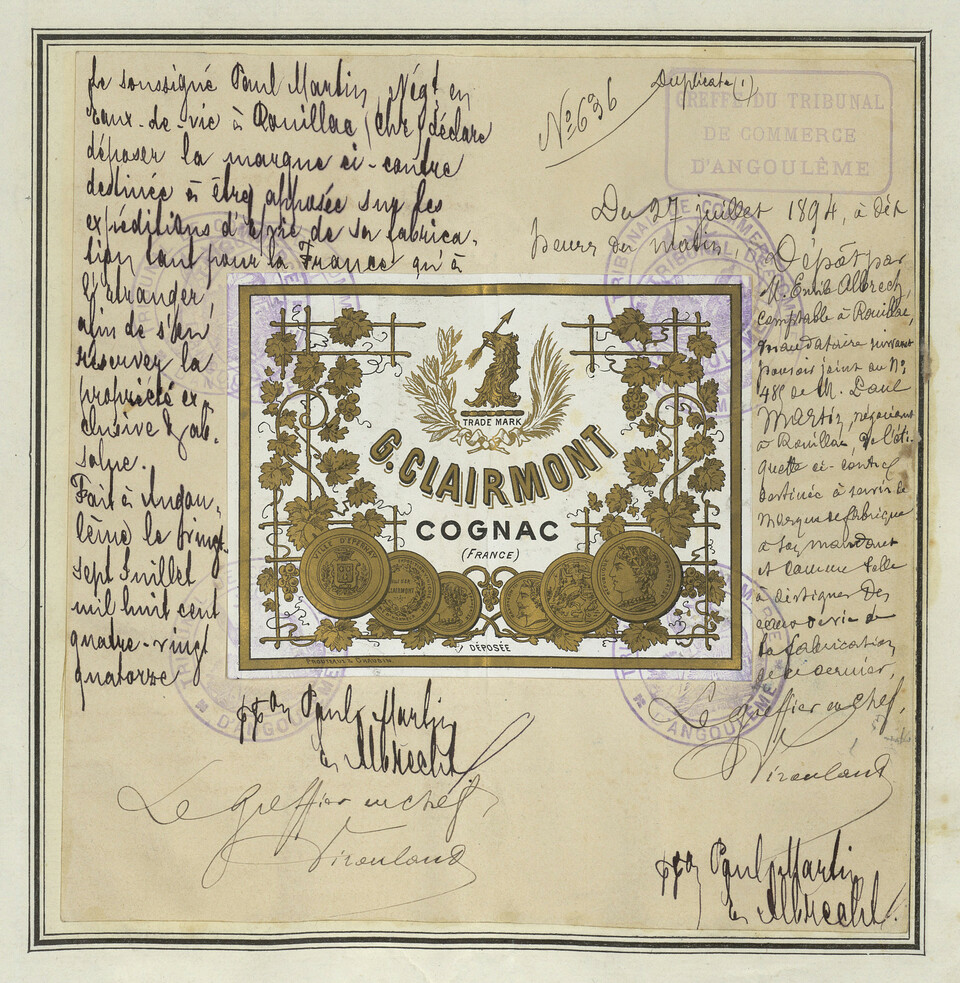 Je soussigné Paul Martin, Négt en
eaux-de-vie à Rouillac (Chte) déclare
déposer la marque ci-contre
destinée à être apposée sur les
expéditions d'E de sa fabrica-
tion tant pour la France qu'à
l'étranger,
afin de s'en
réserver la
propriété ex-
clusive & ab-
solue.
Fait à Angou-
lême le vingt
sept Juillet
mil huit cent
quatre-vingt
quatorze
ppon Paul Martin
E. Albrecht
Le Greffier en chef,
Nº 636
Duplicata (1)
GREFFE DU TRIBUNAL
DE COMMERCE
D'ANGOULÊME
Du 27 juillet 1894, à dix
heures du matin,
Dépôt par
M. Emile Albrech,
comptable à Rouillac,
mandataire suivant
pouvoir joint au Nº
de M. Paul
Martin, négociant
à Rouillac de l'éti-
quette ci-contre
destinée à servir de
marque de fabrique
à son mandant
et comme telle
à désigner des
eaux de vie de
la fabrication
de ce dernier,
Le Greffier en chef,
ppon Paul Martin
E. Albrecht.
TRADE MARK
G. CLAIRMONT
COGNAC
(FRANCE)
VILLE D'EPERNAY
CLAIRMONT
DÉPOSÉE
TRIBUNAL DE COMMERCE
D'ANGOULÊME